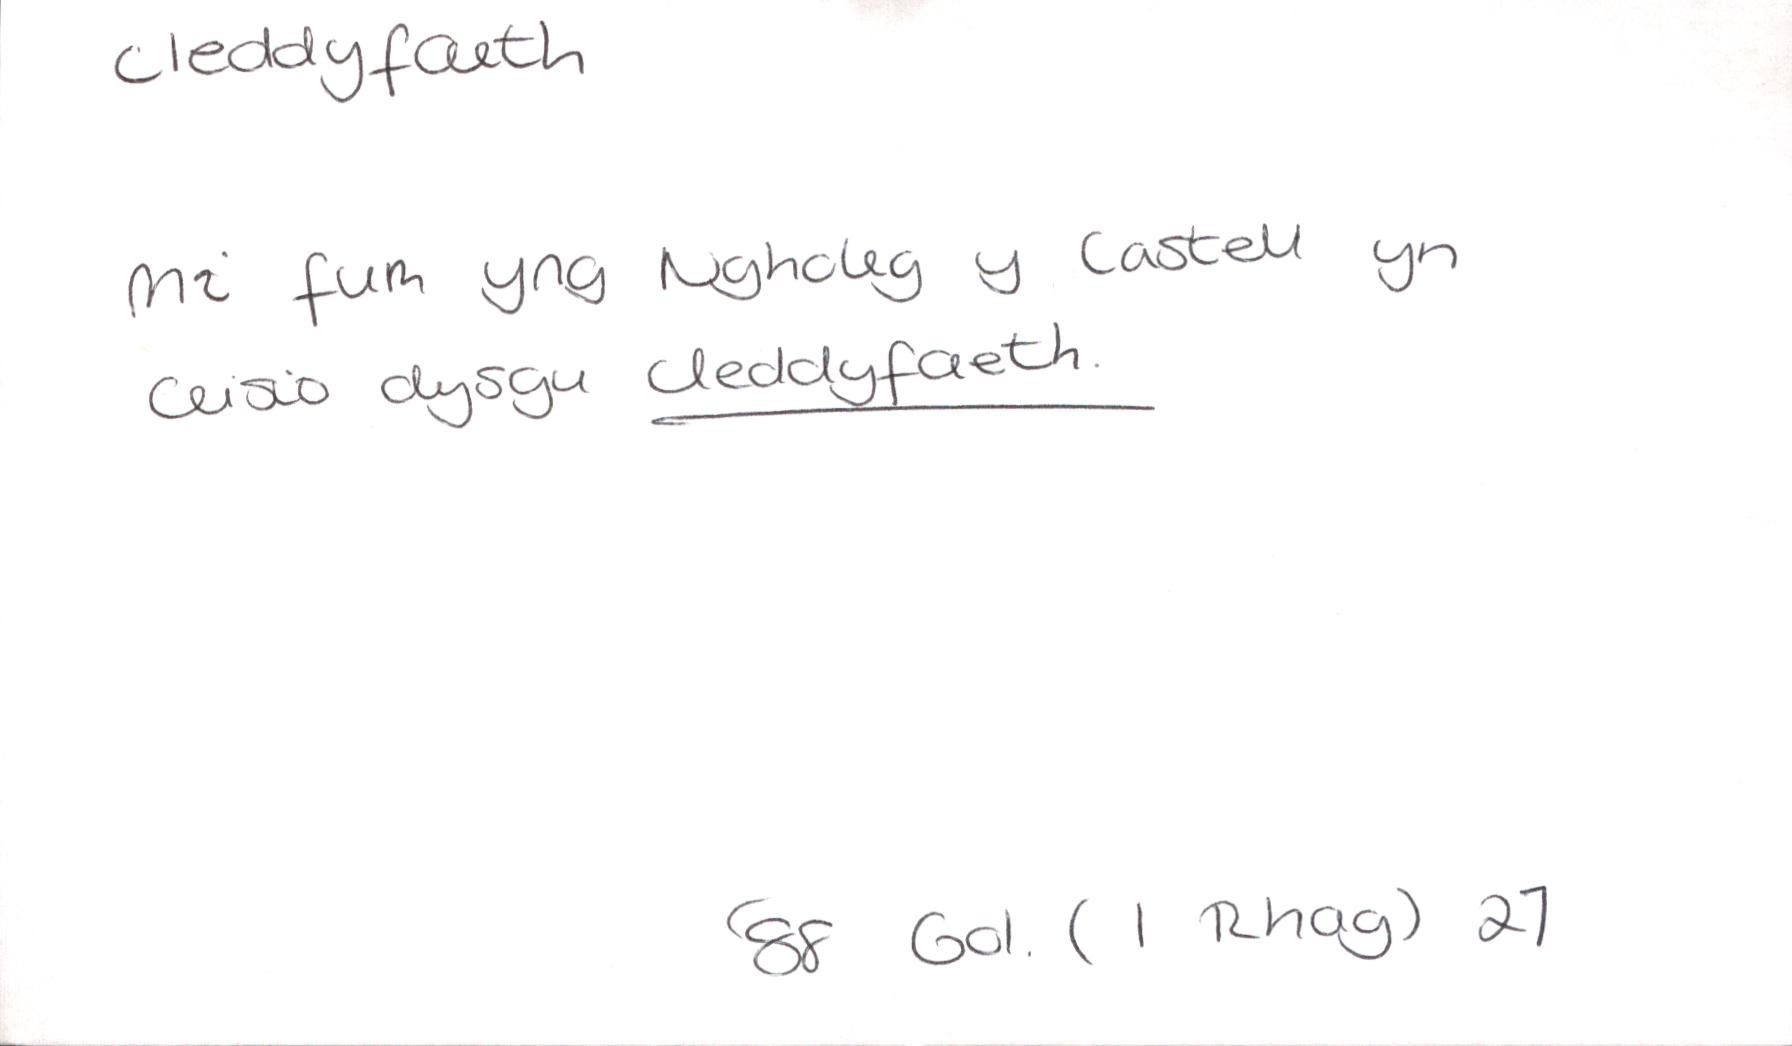 cleddyfaeth
Mi fum yng Ngholeg y Castell yn
ceisio dysgu cleddyfaeth.
'88 Gol. (1 Rhag) 27